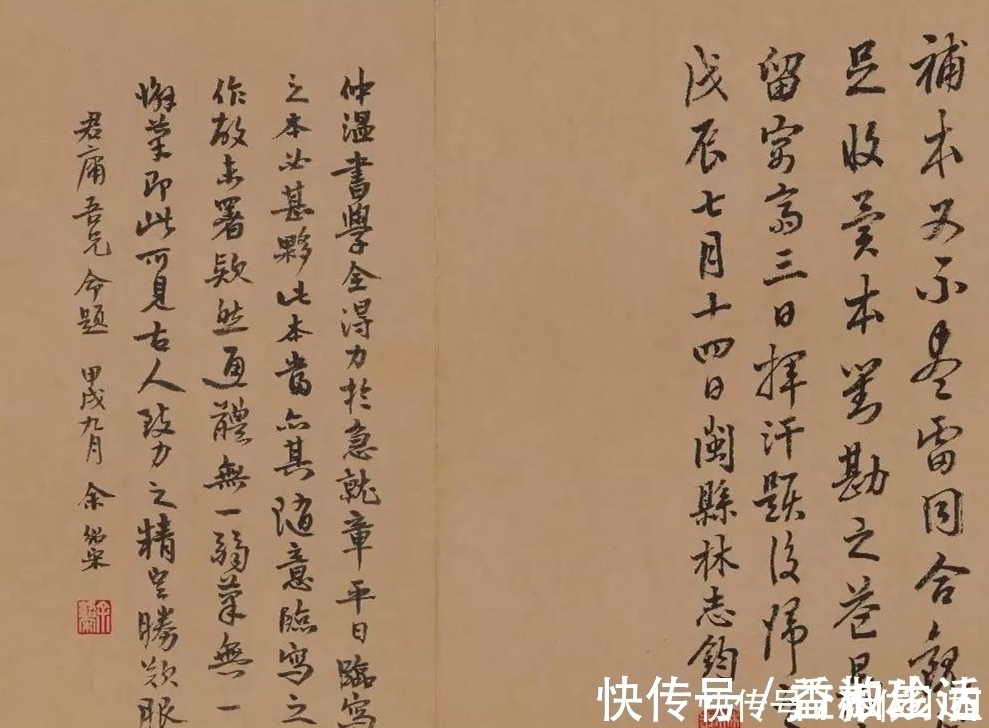 補本又不盡雷同合觀
足收異本對勘之益是
留京齋三日揮汗題後歸之
戊辰七月十四日閩縣林志鈞
仲温書學全得力於急就章平日臨寫
之本必甚夥此本當亦其隨意臨寫之
作故未署款然通體無一弱筆無一
懈筆即此可見古人致力之精空勝欽服
君庸吾兄命題 甲戌九月 余紹宋
快传号/香柏珍话